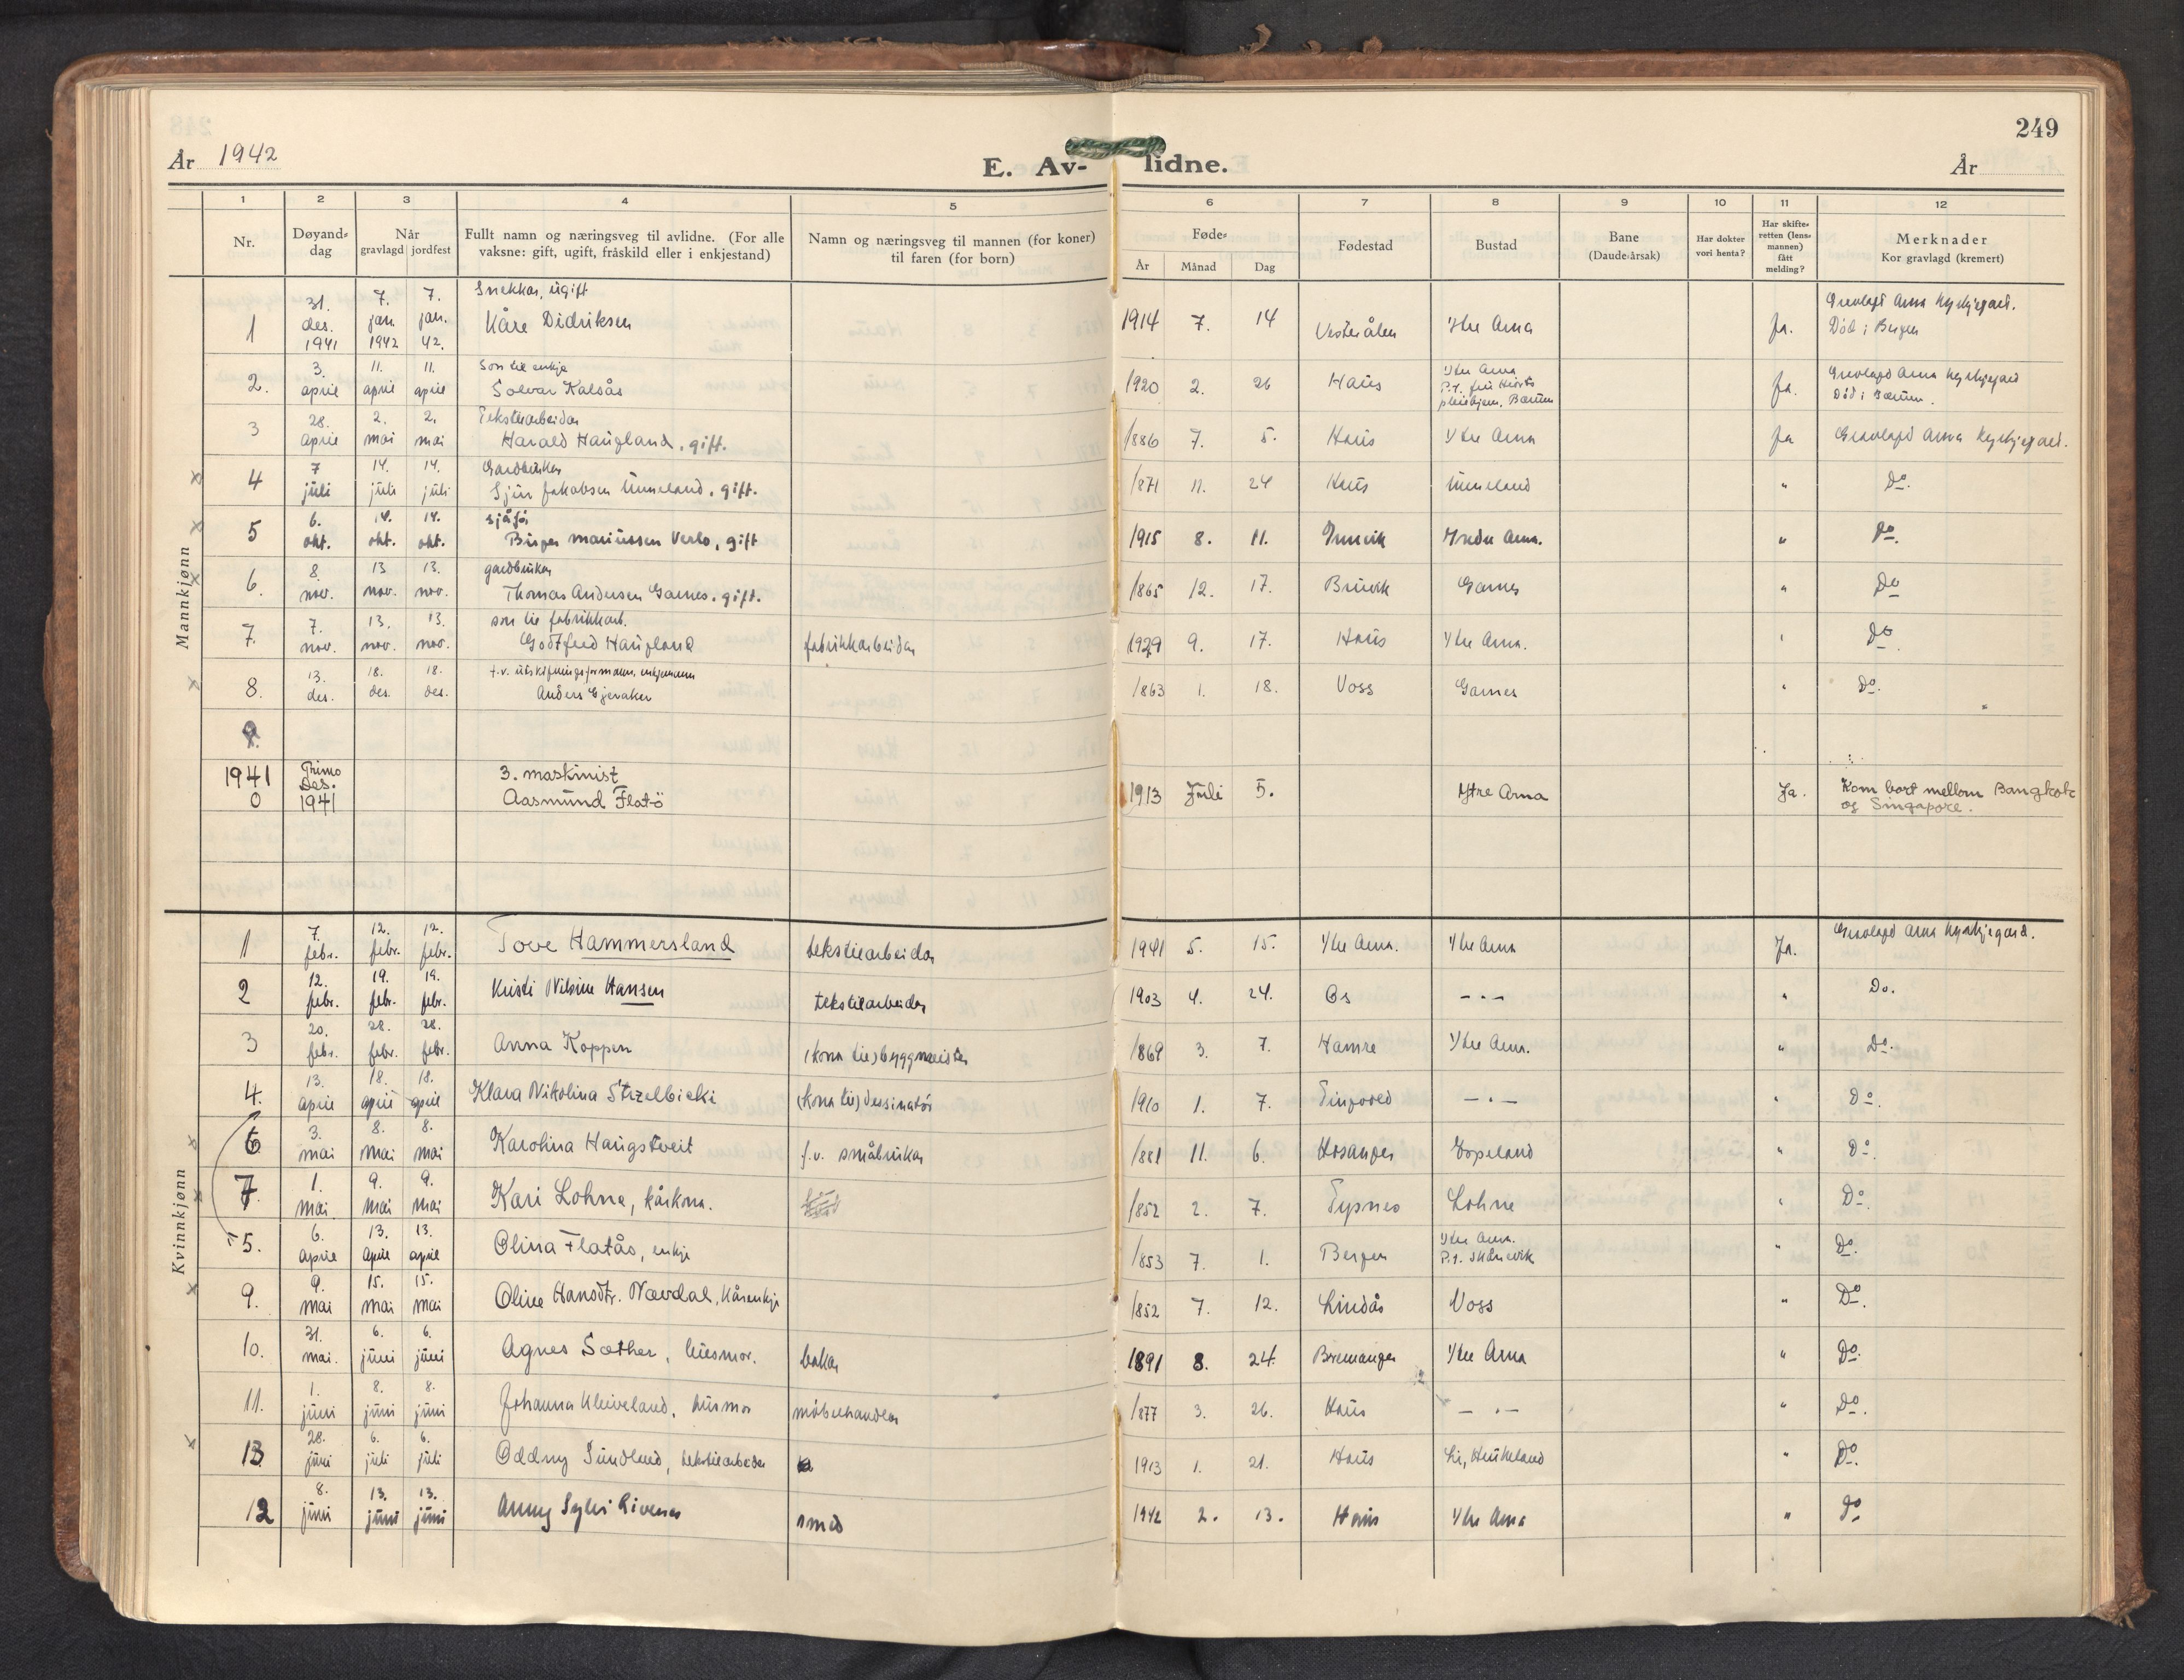 249
År 1942
E. Av- lidne.
År
1 2 3 4 5 6 7 8 9 10 11 12
Nr.
Døyand-
dag
Når
gravlagd jordfest
Fullt namn og næringsveg til avlidne. (For alle
vaksne: gift, ugift, fråskild eller i enkjestand)
Namn og næringsveg til mannen (for koner)
til faren (for born)
Føde-
År Månad Dag
Fødestad
Bustad
Bane
(Daude-årsak)
Har dokter
vori henta?
Har skifte-
retten (lens-
mannen)
fått
melding?
Merknader
Kor gravlagd (kremert)
Mannkjønn
1 31. des. 1941 7. jan. 1942 7. jan. 42. Snekkar, ugift
Kåre Didriksen 1914 7. 14 Vesterålen Ytre Arna ja. Gravlagd Arna kyrkjegard.
Død i Bergen
2. 3. april 11. april 11. april Son til enkje
Solvar Kalsås 1920 2. 26 Haus Ytre Arna
P.t.
pleiehjem, Bærum ja. Gravlagd Arna kyrkjegard
Død i Bærum.
3 28. april 2. mai 2. mai Tekstilarbeidar
Harald Haugland, gift. 1886 7. 5. Haus Ytre Arna ja Gravlagd Arna kyrkjegard.
4 7 juli 14. juli 14. juli Gardbrukar
Sjur Jakobsen Unneland, gift. 1871 11. 24 Haus Unneland " Do.
5 6. okt. 14. okt. 14. okt. sjåfør
Birger Mariussen Verlo, gift 1915 8. 11. Innvik Indre Arna. " Do.
6. 8. nov. 13 nov. 13. nov. gardbrukar
Thomas Andersen Garnes, gift. 1865 12. 17. Bruvik Garnes " Do
7. 7. nov. 13. nov. 13. nov. son til fabrikkarb.
Godtfred Haugland fabrikkarbeidar 1929 9. 17. Haus Ytre Arna. " Do
8. 13. des. 18. des. 18. des. f.v. utskiftningsformann, enkjemann
Anders Gjeraker 1863 1. 18. Voss Garnes " Do.
9.
1941
0 Primo
Des.
1941 3. maskinist
Aasmund Flatö 1913 Juli 5. Ytre Arna Ja. Kom bort mellom Bangkok
og Singapore.
Kvinnkjønn
1 7. febr. 12. febr. 12. febr. Tove Hammersland tekstilarbeidar 1941 5. 15. Ytre Arna. Ytre Arna Ja. Gravlagd Arna kyrkjegard.
2 12. febr. 19. febr. 19. febr. Kristi Nilsine Hansen tekstilarbeidar 1903 4. 24. Os — . — " Do.
3 20. febr. 28. febr. 28. febr. Anna Koppen (kona til) byggmeister 1869 3. 7. Hamre Ytre Arna. " Do.
4. 13. april 18. april 18. april Klara Nikolina Strzelbicki (kona til) dessinatör 1910 1. 7. Tingvoll — . — " Do.
6 3. mai 8. mai 8. mai Karolina Haugstveit f.v. småbrukar 1881 11. 6. Hosanger Espeland " Do.
7. 1. mai 9. mai 9. mai Kari Lohne, kårkona. 1852 2. 7. Tysnes Lohne " Do.
5. 6. april 13. april 13. april Olina Flatås, enkje 1853 7. 1. Bergen Ytre Arna.
P.t. Skånevik " Do.
9. 9. mai 15. mai 15. mai Oline Hansdtr. Nævdal, kårenkje 1852 7. 12. Lindås Voss " Do.
10. 31. mai. 6. juni 6. juni Agnes Sæther, husmor. bakar 1891 8. 24. Bremanger Ytre Arna " Do.
11. 1. juni 8. juni 8. juni Johanna Kleiveland, husmor møbelhandlar 1877 3. 26. Haus — . — " Do.
13 28. juni 6. juli 6. juli Oddny Sundland, tekstilarbeidar 1913 1. 21. Haus Li, Haukeland " Do.
12 8. juni 13. juni 13. juni Anny Sylvi Livenes smed 1942 2. 13. Haus Ytre Arna " Do